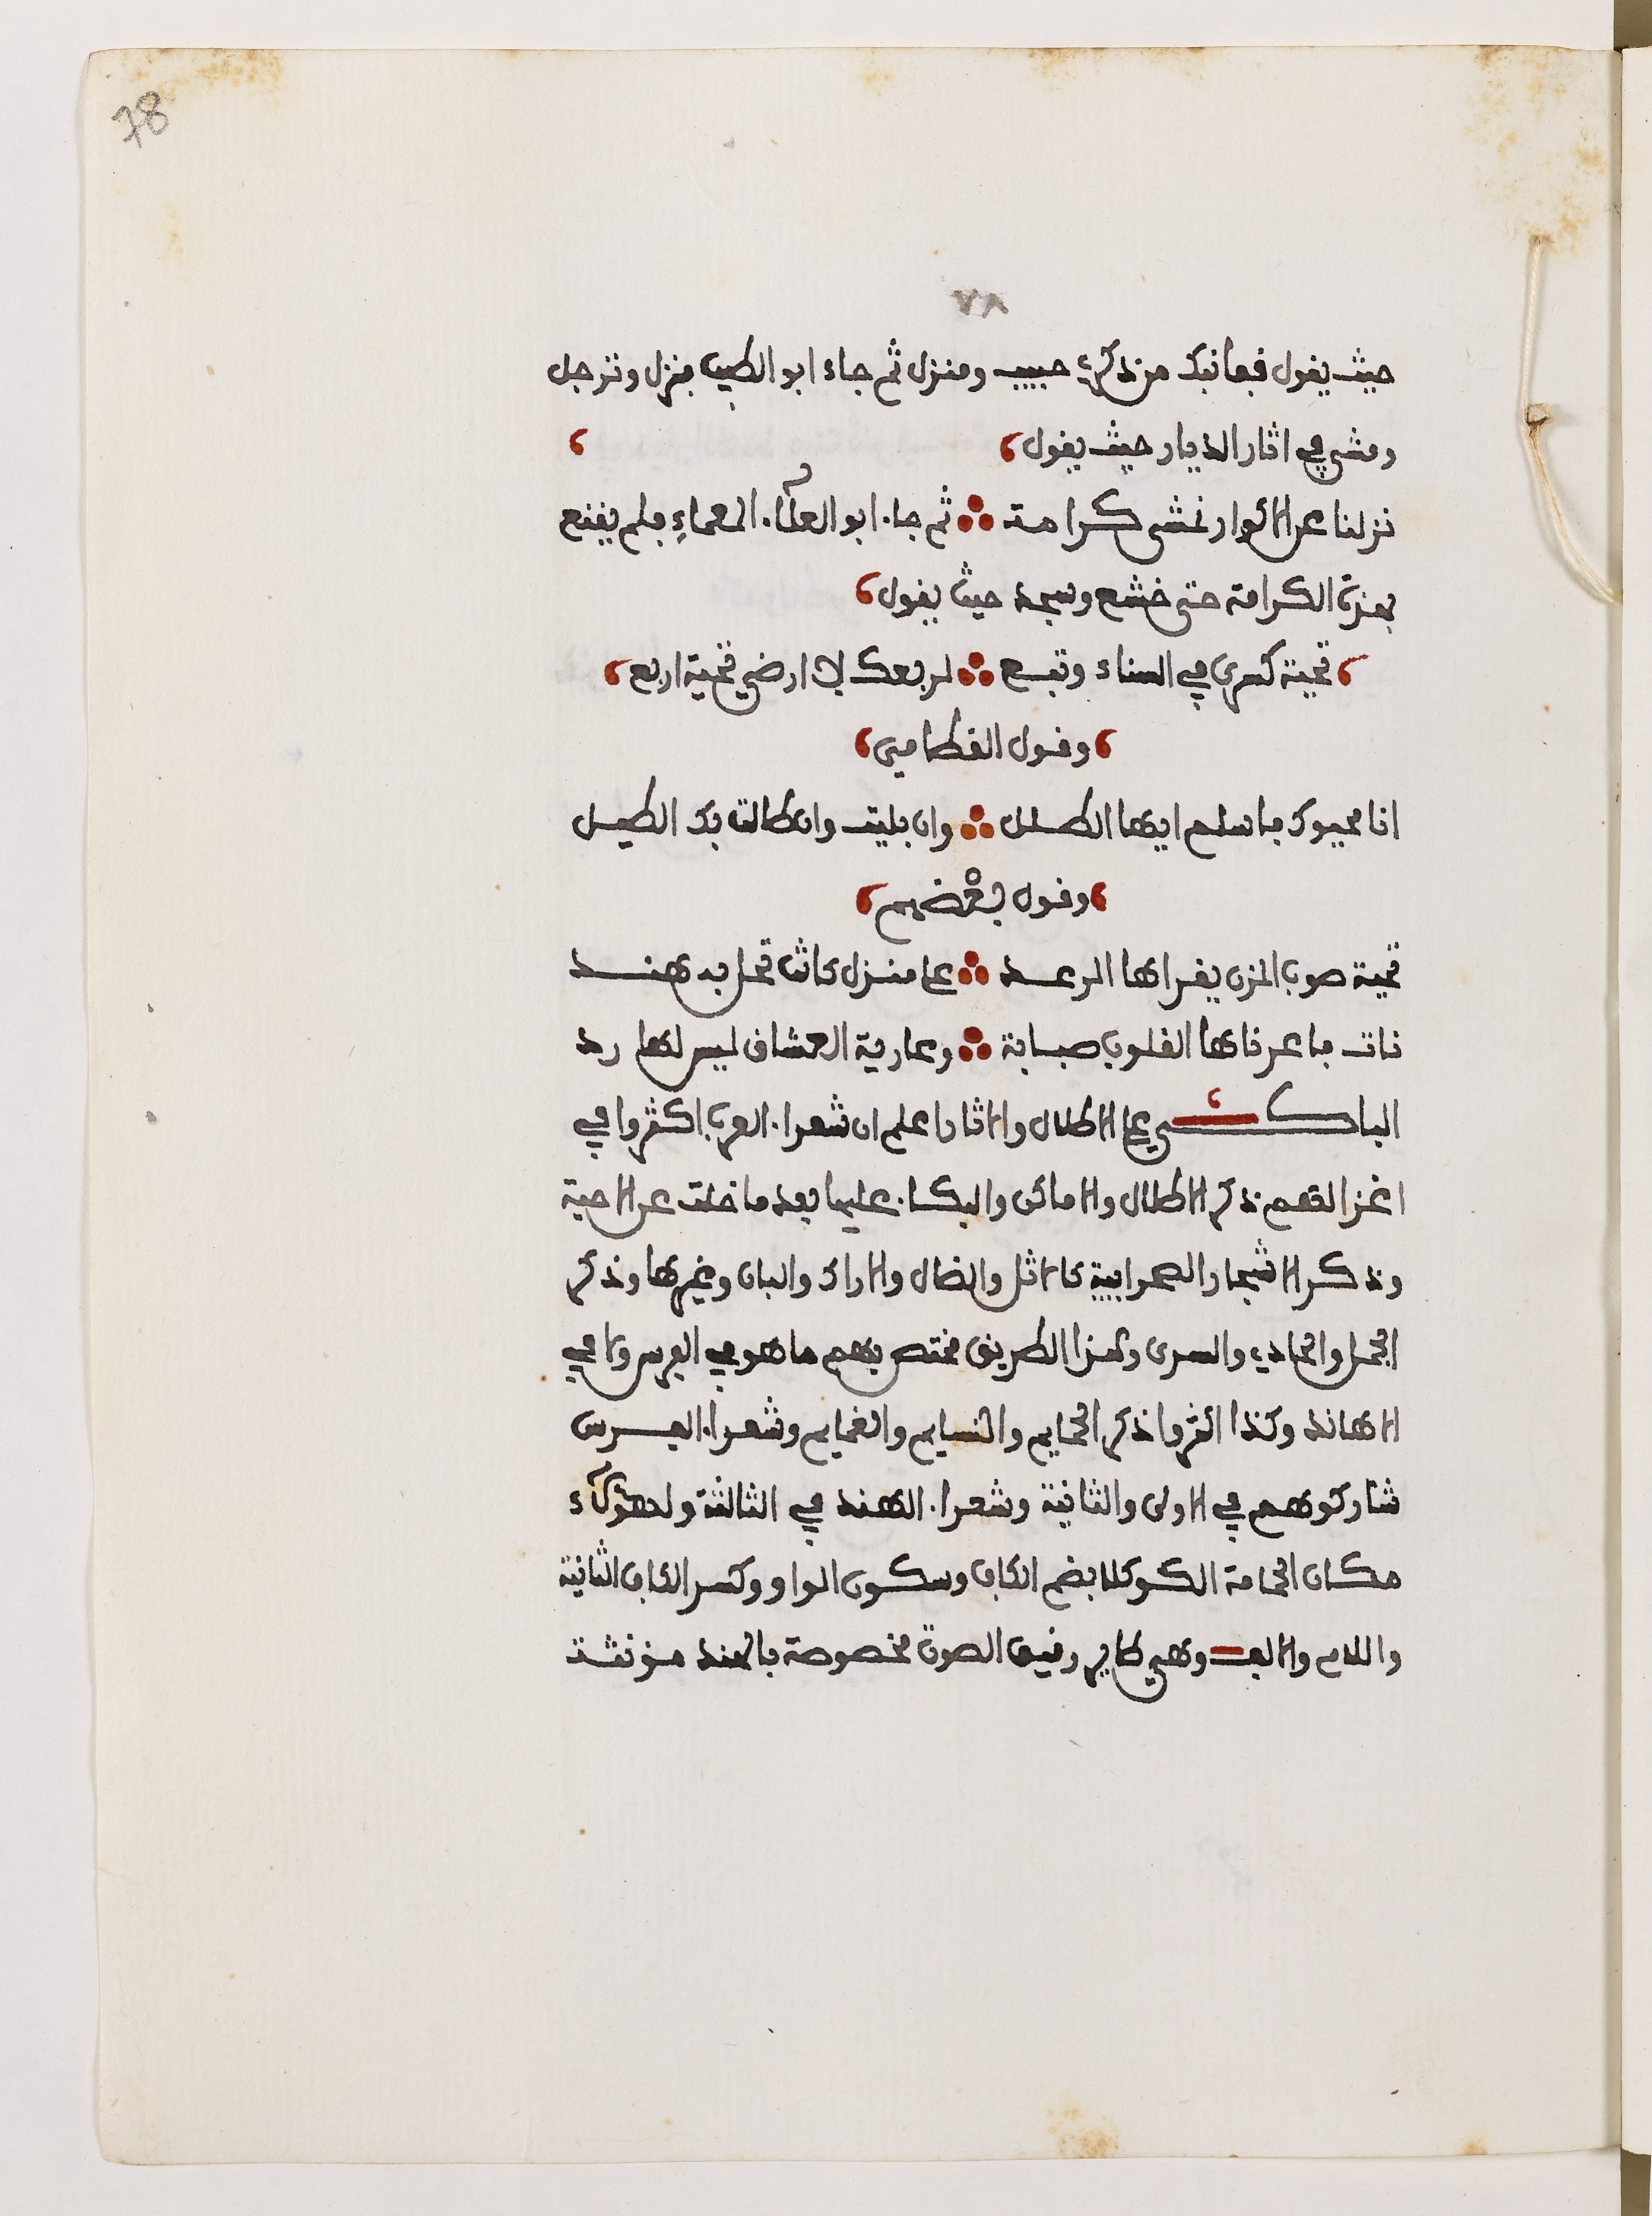 78
٧٨
حيث يقول قفا نبك من ذكرى حبيب ومنزل ثم جاء ابو الطيب فنزل وترجل
ومشى في اثار الديار حيث يقول
نزلنا عن الاكوار نمشى كرامة ثم جاء ابو العلاء المعماء فلم يقنع
بهذة الكرامة حتى خشع وسجد حيث يقول
تحية كسرى في السناء وتبع لربعك لا ارضى تحية اربع
وقول القطامى
انا محيوك فاسلم ايها الطلل وان بليت وان طالت بك الطيل
وقول بعْضهم
تحية صوب المزن يقراها الرعد على منزل كانت تحل به هند
نات فاعرناها القلوب صبابة وعارية العشاق ليس لها رد
الباكي على الاطلال والاثار اعلم ان شعراء العرب اكثروا في
اغزالهم ذكر الاطلال والاماكن والبكاء عليها بعد ما خلت عن الاحبة
وذكر الاشجار الصحراييية كالاثل والضال والاراك والبان وغيرها وذكر
الجمل والحادي والسرى وهذا الطريق مختص بهم ما هو في الفرس ولا في
الاهاند وكذا اكثروا ذكر الحمايم والنسايم والغمايم وشعراء الفرس
شاركوهم في الاولى والثانية وشعراء الهند في الثالثة ولهؤلاء
مكان الحمامة الكوكلا بضم الكاف وسكون الواو وكسر الكاف الثانية
واللام والالف وهي طاير رقيق الصوت مخصوصة بالهند مؤنثة